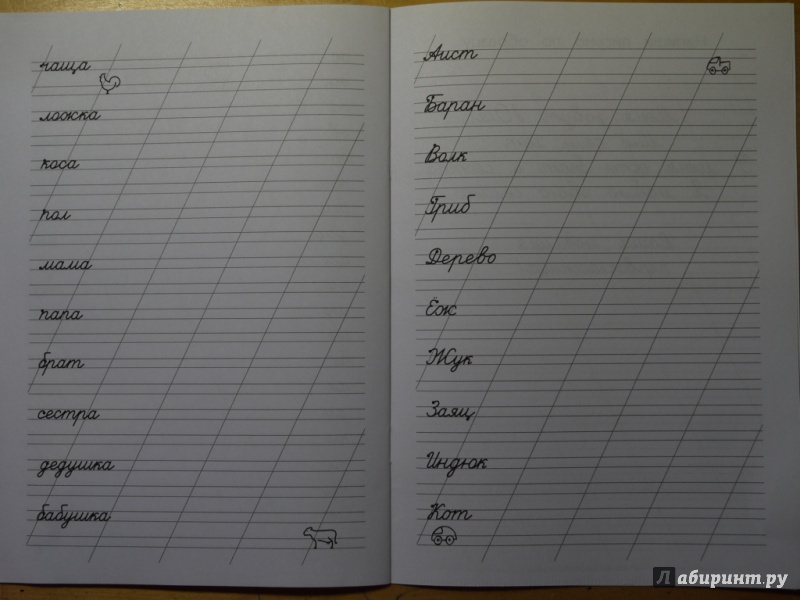 чаща
ложка
коса
пол
мама
папа
брат
сестра
дедушка
бабушка
Аист
Баран
Волк
Гриб
Дерево
Ёж
Жук
Заяц
Индюк
Кот
Лабиринт.ру